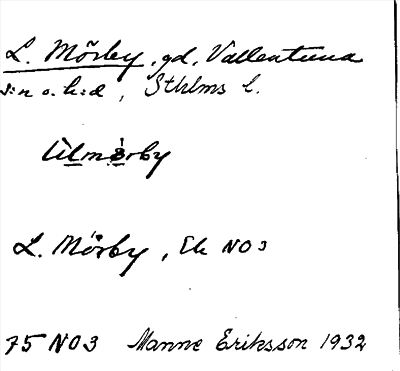 L. Mörby, gd, Vallentuna
s:n o. h:d, Sthlms l.
L. Mörby, Ek NO 3
75 NO3 Manne Eriksson 1932